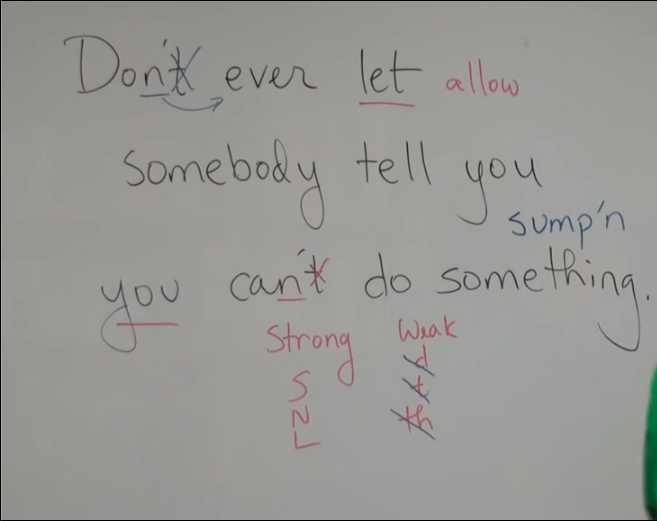 Don't ever let allow
somebody tell you
sump'n
you can't do something.
Strong Weak
S d
N t
L th